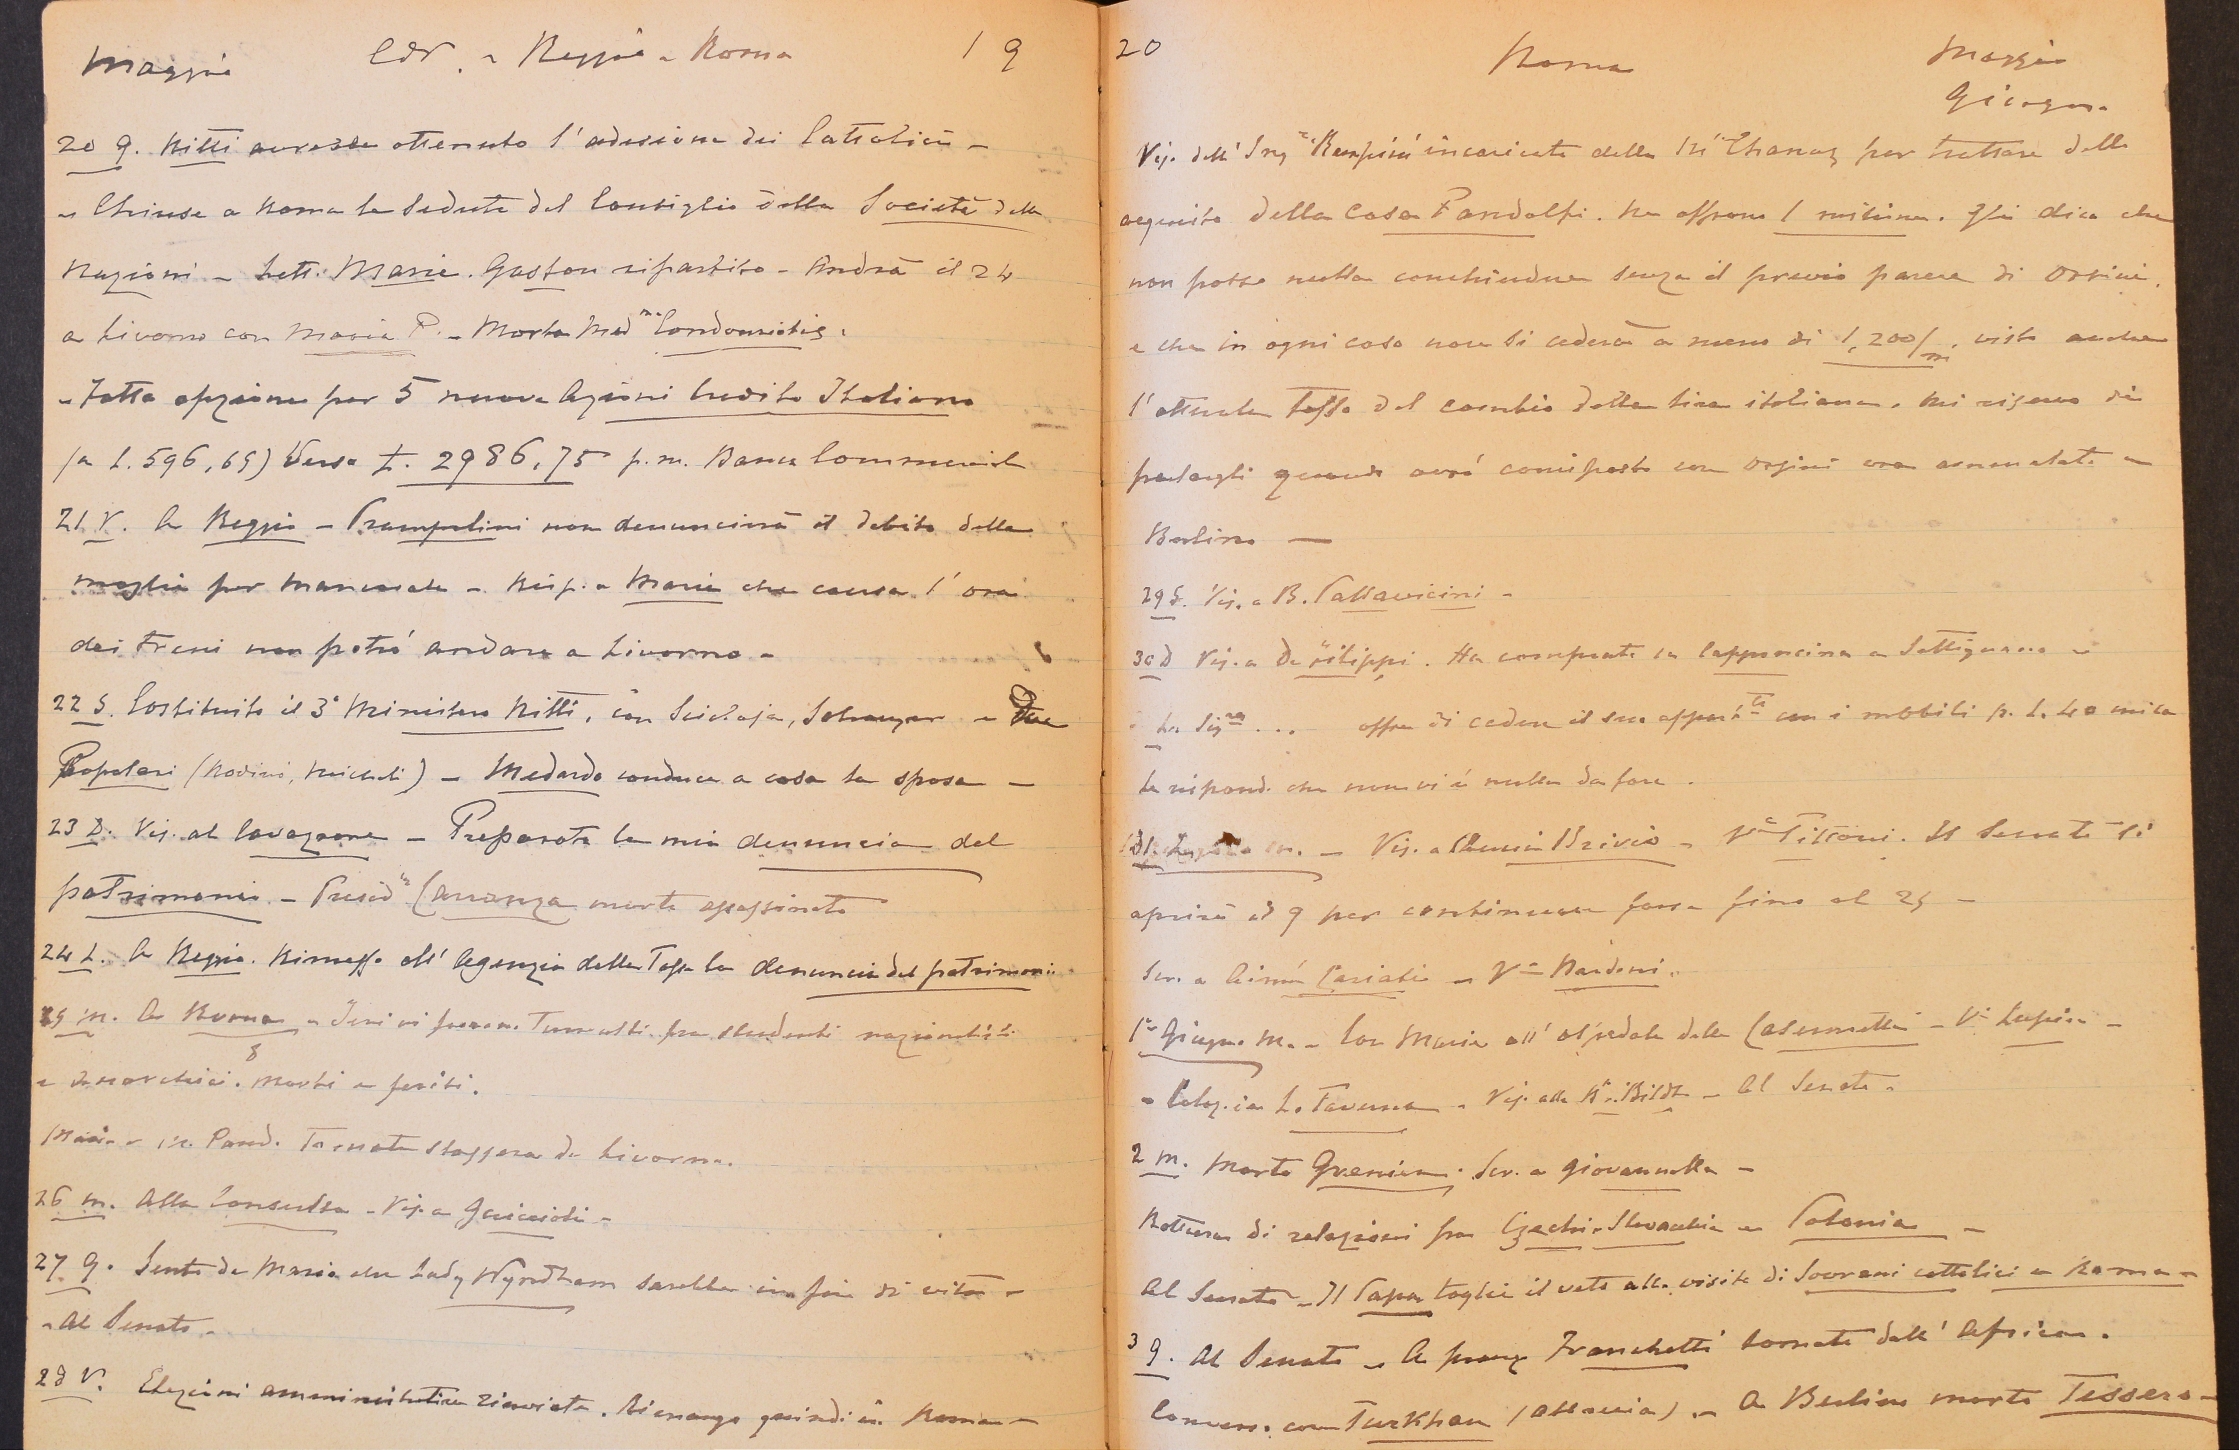 Maggio Cav. - Reggio - Roma 19
20 g. Nitti avrebbe ottenuto l'adesione dei Cattolici -
- Chiusa a Roma la seduta del Consiglio della Società delle
Nazioni - Lett. Marie. Gaston ripartito - Andrà il 24
a Livorno con Maria P. - Morta Mad.me Condouriotis.
- Fatta opzione per 5 nuove Azioni Credito Italiano
(a L. 596,65) Verso £. 2986,75 p.m. Banca Commerciale
21 V. A Reggio - Prampolini non denuncierà il debito della
moglie per Mancasale - Risp. a Marie che causa l'ora
dei treni non potrò andare a Livorno -
22 S. Costituito il 3° Ministero Nitti, con Scialoja, Schanzer e due
Popolari (Rodinò, Micheli) - Medardo conduce a casa la sposa -
23 D. Vis. al Cavazzone - Preparata la mia denuncia del
patrimonio - Presid.te Carranza morto assassinato
24 L. A Reggio. Rimessa all'Agenzia delle Tasse la denuncia del patrimonio
25 M. A Roma - Ieri vi furono tumulti fra studenti nazionalisti
e anarchici. Morti e feriti.
Maria e M. Pand. tornate stassera da Livorno.
26 M. Alla Consulta - Vis. a Guiccioli -
27 G. Sento da Maria che Lady Wyndham sarebbe in fin di vita -
- Al Senato -
28 V. Elezioni amministrative rinviate. Rimango quindi a Roma -
20 Roma Maggio
Giugno
Vis. dell'Ing.re incaricato dalla per trattare dello
acquisto della Casa Pandolfi. Ne offrono 1 milione. Gli dico che
non posso nulla conchiudere senza il previo parere di Orsini,
e che in ogni caso non si cederà a meno di 1,200/m, visto anche
l'attuale tasso del cambio della lira italiana. Mi riservo di
parlargli quando avrò corrisposto con Orsini ora ammalato a
Berlino —
29 S. Vis. a B. Pallavicini -
30 D Vis. a De Filippi. Ha comprato la Capponcina a Settignano -
- La Sig.ra ... offre di cedere il suo appar.to con i mobili p. L. 40 mila
Le rispond. che non vi è nulla da fare.
31. L. - Vis. a Brivio - V.a Tittoni. Il Senato si
aprirà il 9 per continuare forse fino al 25 -
Scr. a Cariati - V.a Nardini.
1° Giugno M. - Con Maria all'ospedale delle Casermette - V.a Lupia -
- Colaz. in L. Taverna - Vis. alla B.a Bildt - Al Senato -
2 M. Morto Grenier. Scr. a Giovannella -
Rottura di relazioni fra Czecho-Slovacchia e Polonia -
Al Senato - Il Papa toglie il veto alle visite di Sovrani cattolici a Roma -
3 G. Al Senato - A pranz. Franchetti tornato dall'Africa.
Convers. con Turkhan (Albania). - A Berlino morto Tessero-